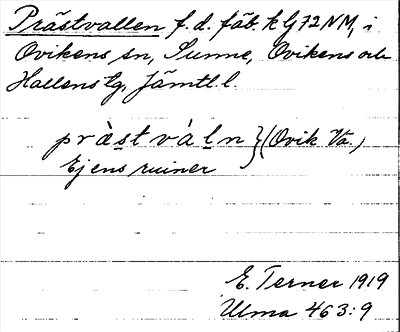 Prästvallen f.d. fäb. k Gj 72 NM, i
Ovikens sn, Sunne, Ovikens och
Hallens tg, Jämtl. l.
pràstvàḷn } (Ovik Va.)
Ej ens ruiner
E. Terner 1919
Ulma 463:9